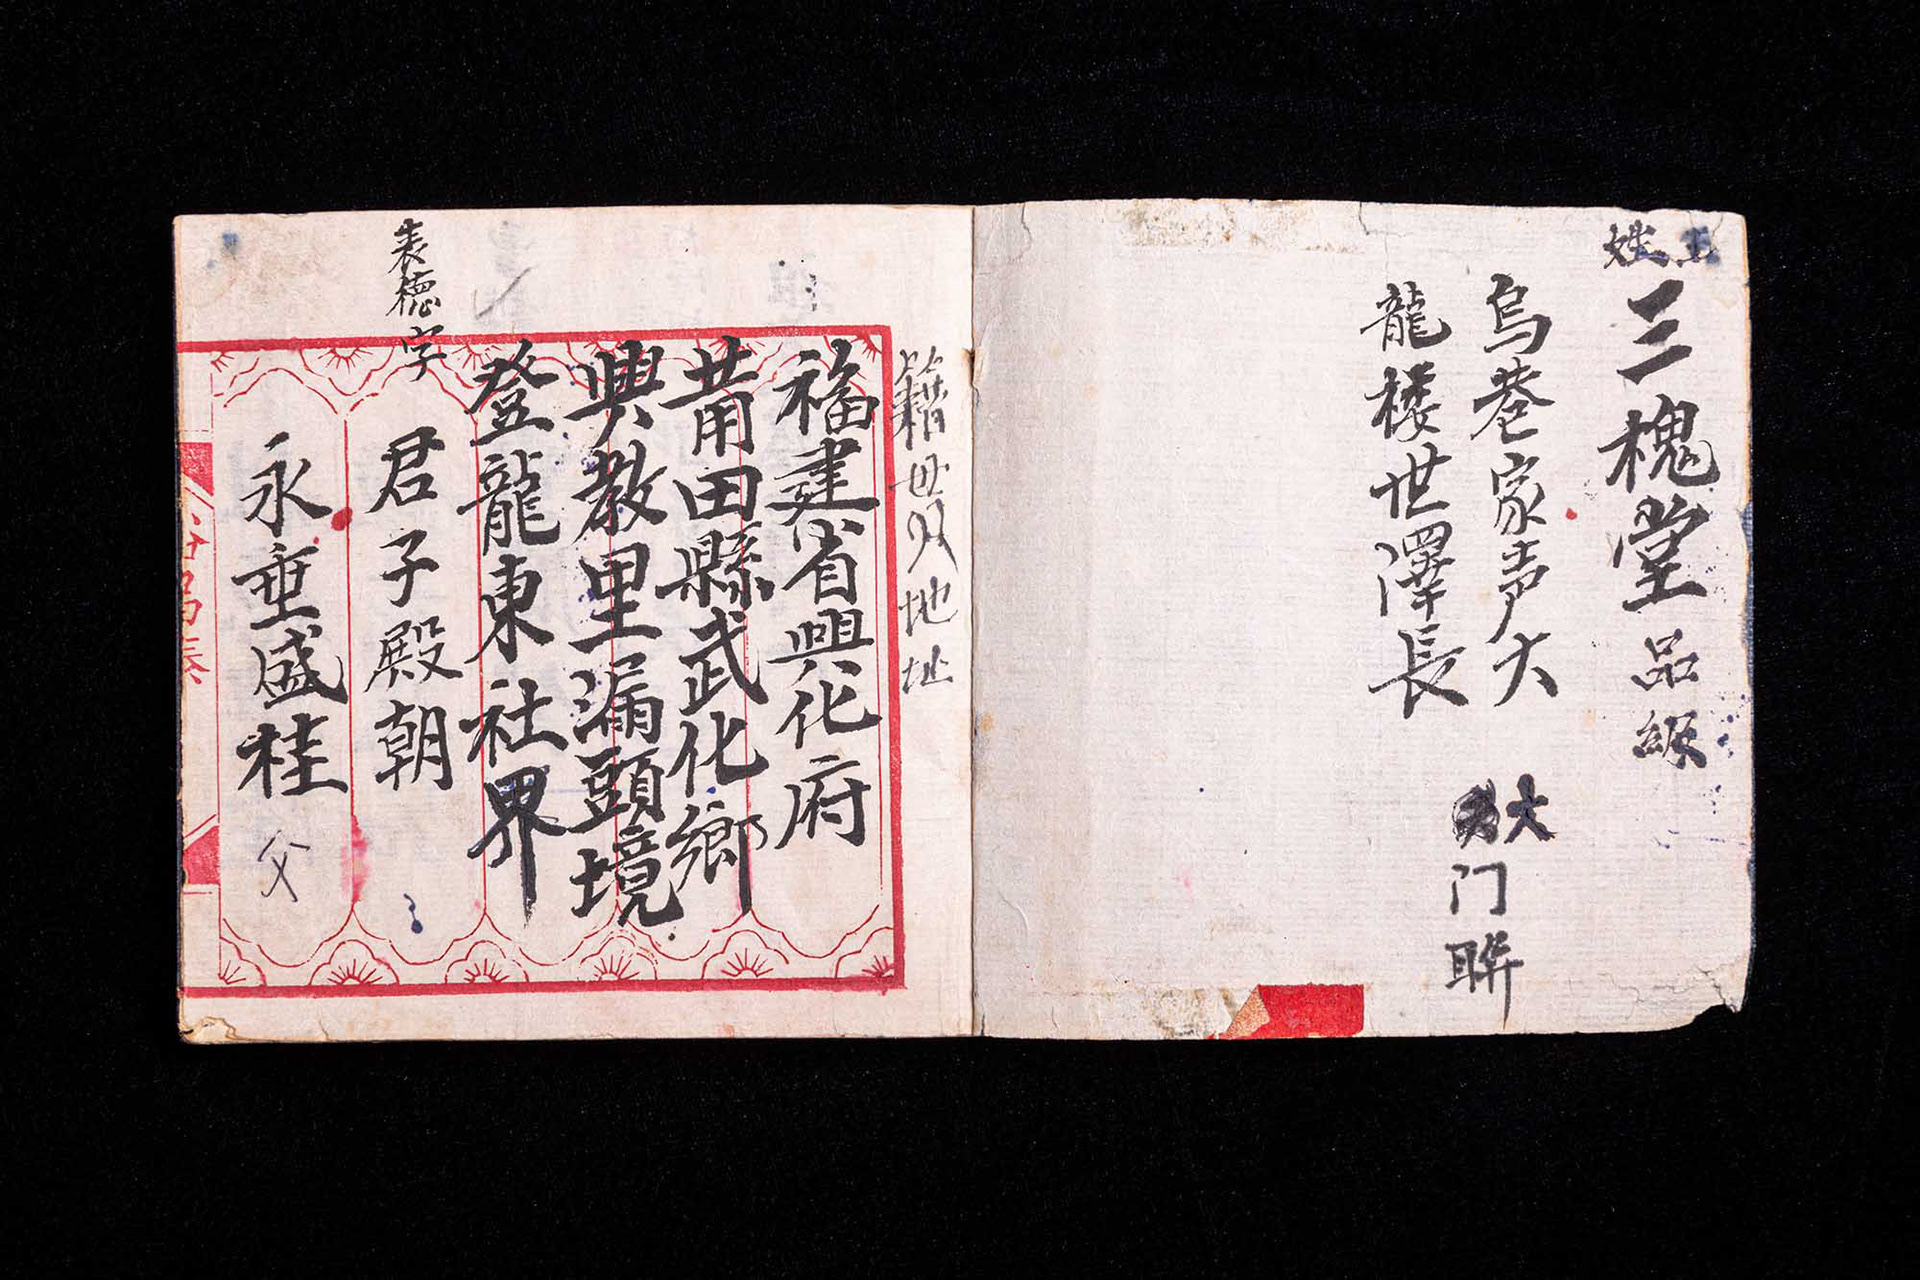 姓王
三槐堂品級
烏巷家声大
龍楼世澤長
大门联
籍世双地址
福建省興化府
莆田縣武化鄉
興教里漏頭境
登龍東社界
表德字
君子殿朝
永垂盛桂父